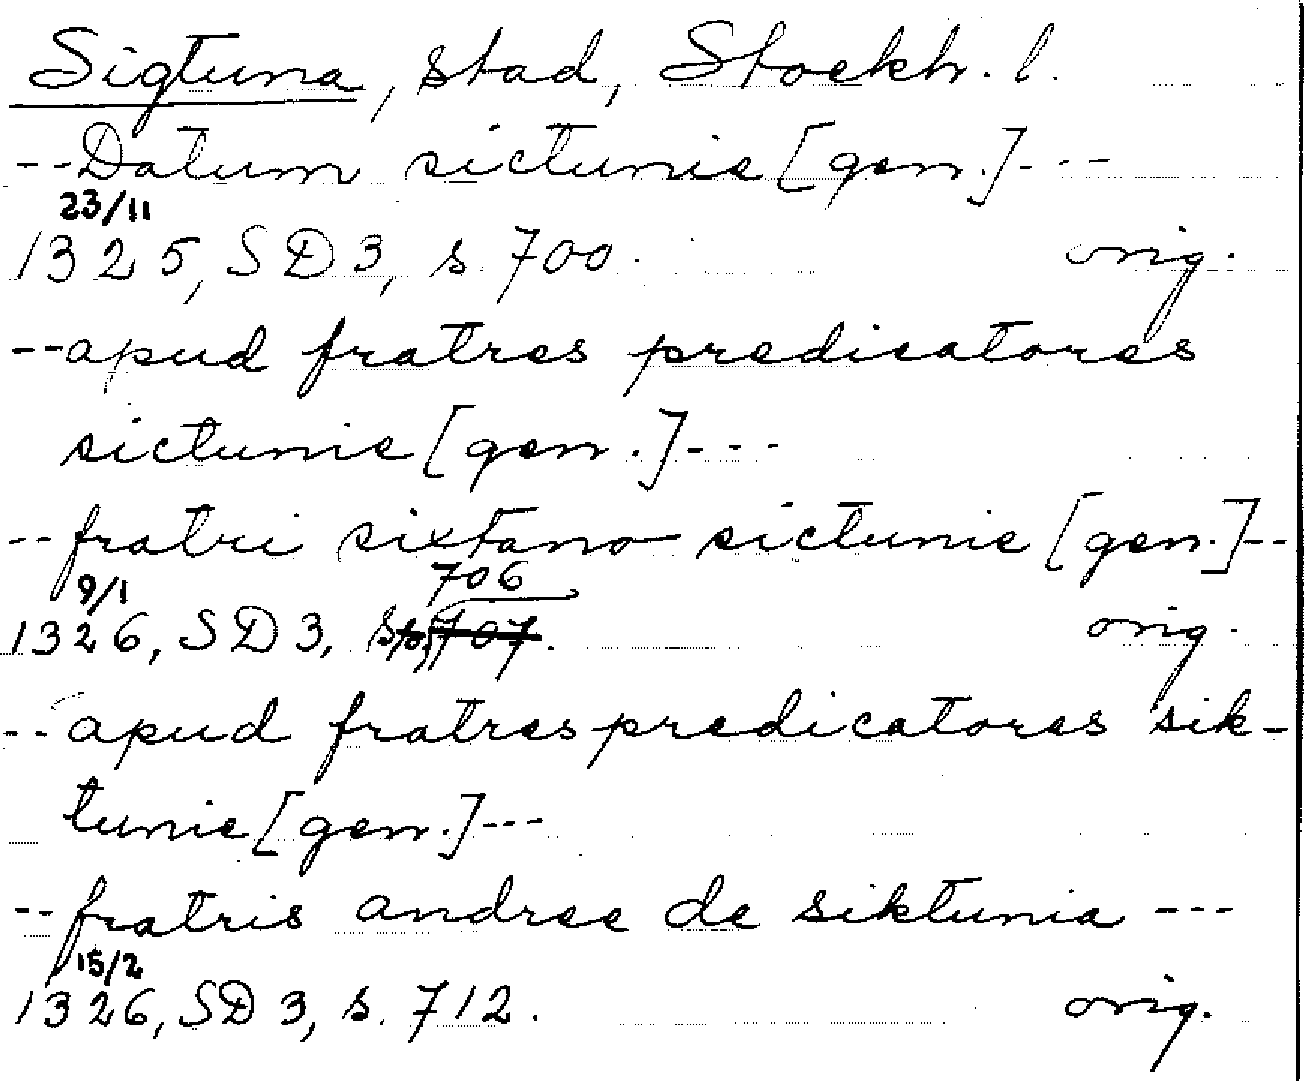 Sigtuna, stad, Stockh. l.
--Datum sictunie [gen.]---
23/11
1325, SD 3, s. 700. orig.
--apud fratres predicatores
sictunie [gen.]---
--fratri sixtano sictunie [gen.]--
9/1 706
1326, SD 3, s. 707. orig.
--apud fratres predicatores sik-
tunie [gen.]---
--fratris andree de siktunia---
15/2
1326, SD 3, s. 712. orig.